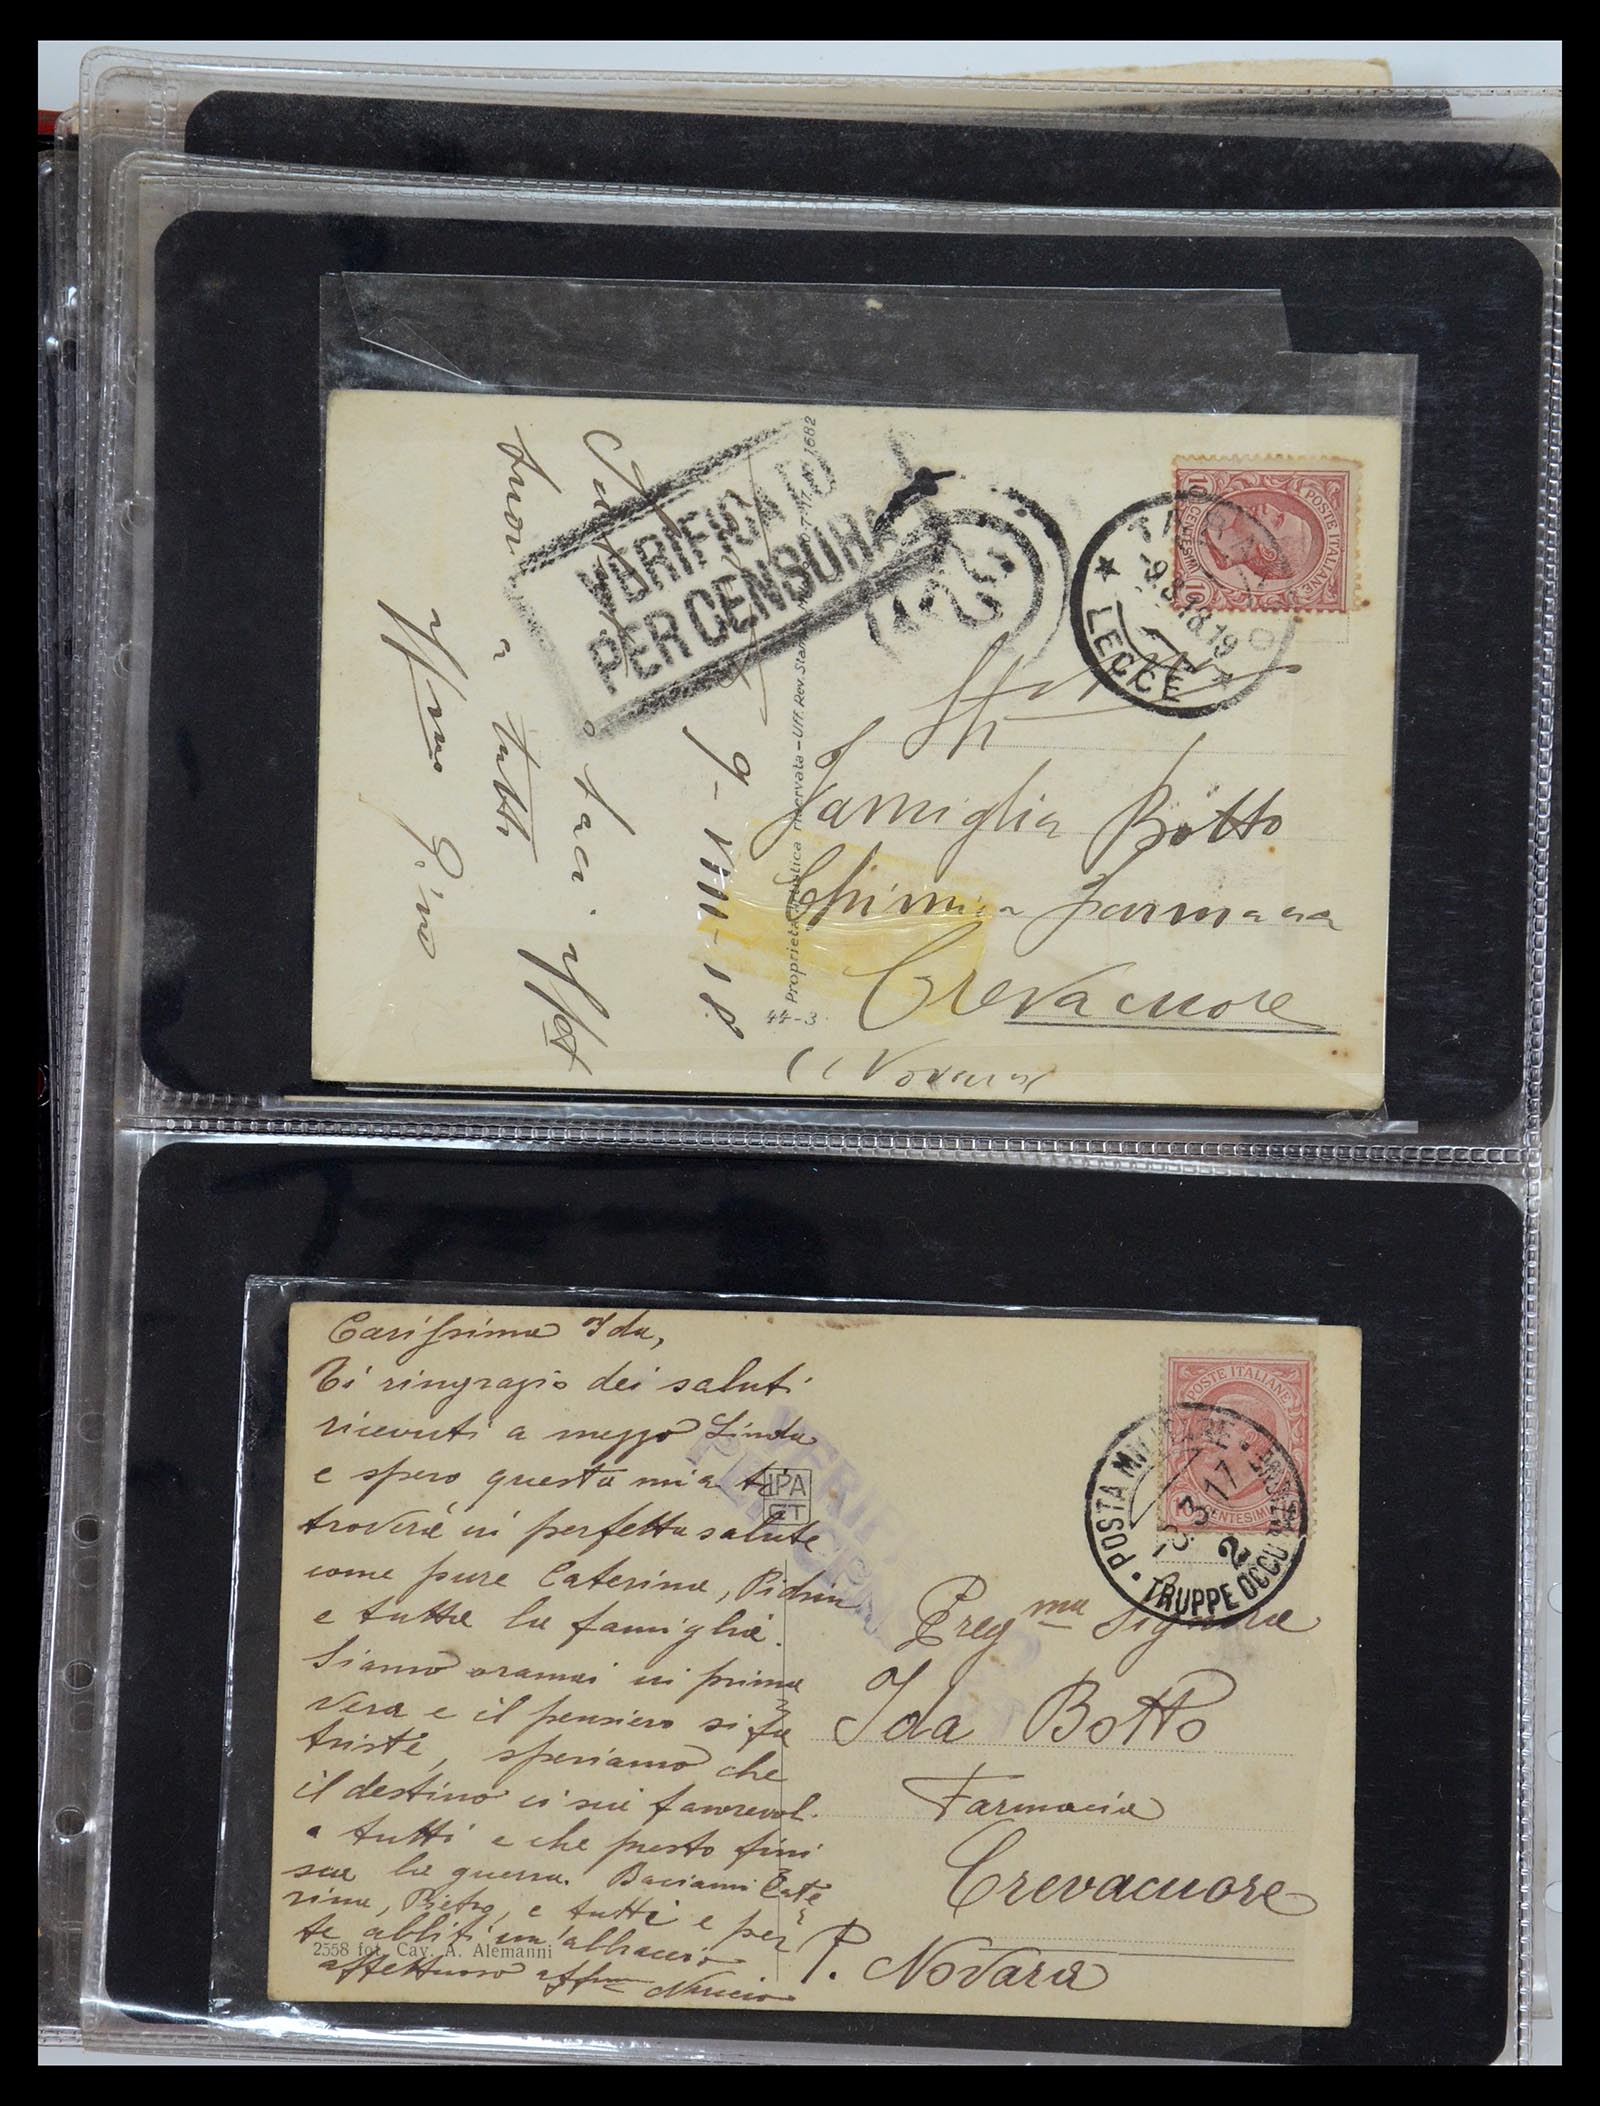 VERIFICATO
PER CENSURA
9-VIII-18
a tutti
Gino
Proprietà artistica riservata - Uff. Rev. Stampa
44-3
POSTE ITALIANE
CENTESIMI 10
9.8.18.19
LECCE
Famiglia Botto
Crevacuore
(Novara)
Carissima Ida,
Ti ringrazio dei saluti
ricevuti a mezzo Linda
e spero questa mia ti
troverà in perfetta salute
come pure Caterina,
e tutta la famiglia.
Siamo oramai in prima
vera e il pensiero si fa
triste, speriamo che
il destino ci sia favorevol.
a tutti e che presto fini
sca la guerra. Baciami Cate
rina, Pietro, e tutti e per
te abbiti un abbraccio
affettuoso aff.mo
2558 fot. Cav. A. Alemanni
IPA
CT
VERIFICATO
PER CENSURA
POSTE ITALIANE
10 CENTESIMI
POSTA MILITARE
8.3.17
2
TRUPPE OCCUPAZIONE
Preg.ma Signora
Ida Botto
Farmacia
Crevacuore
P. Novara